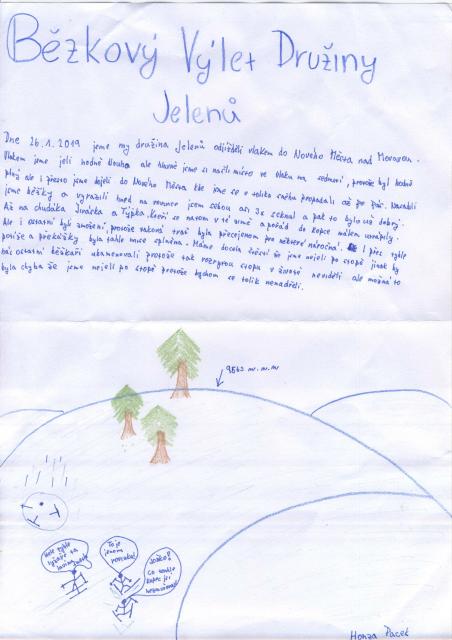 Běžkový Výlet Družiny
Jelenů
Dne 26.1.2019 jsme my družina Jelenů odjížděli vlakem do Nového Města nad Moravou.
Vlakem jsme jeli hodně dlouho ale hlavně jsme si našli místo ve vlaku na sednutí, protože byl hodně
plný ale i přesto jsme dojeli do Nového Města kde jsme se v tolika sněhu propadali až po
jsme běžky a vyrazili hned na rovince jsem sebou asi 3x seknul a pak to bylo už dobrý.
Až na chudáka a Ťapka kteří se našom v té zimě a pořád do kopce málem umrzly.
Ale i ostatní byli zmoženi, protože taková trať byla přecejenom pro některé náročná. I přes tyhle
potíže a překážky byla tahle mise splněna. Máme docela štěstí že jsme nejeli po stopě jinak by
nás ostatní běžkaři ukamenovali protože tak rozrytou stopu v životě neviděli ale možná to
byla chyba že jsme nejeli po stopě protože bychom se tolik nenadřeli.
9563 m.n.m
tyhle lyžaře za
To je jenom
Ježko? Co tenhle kopec je?
Honza Pacek